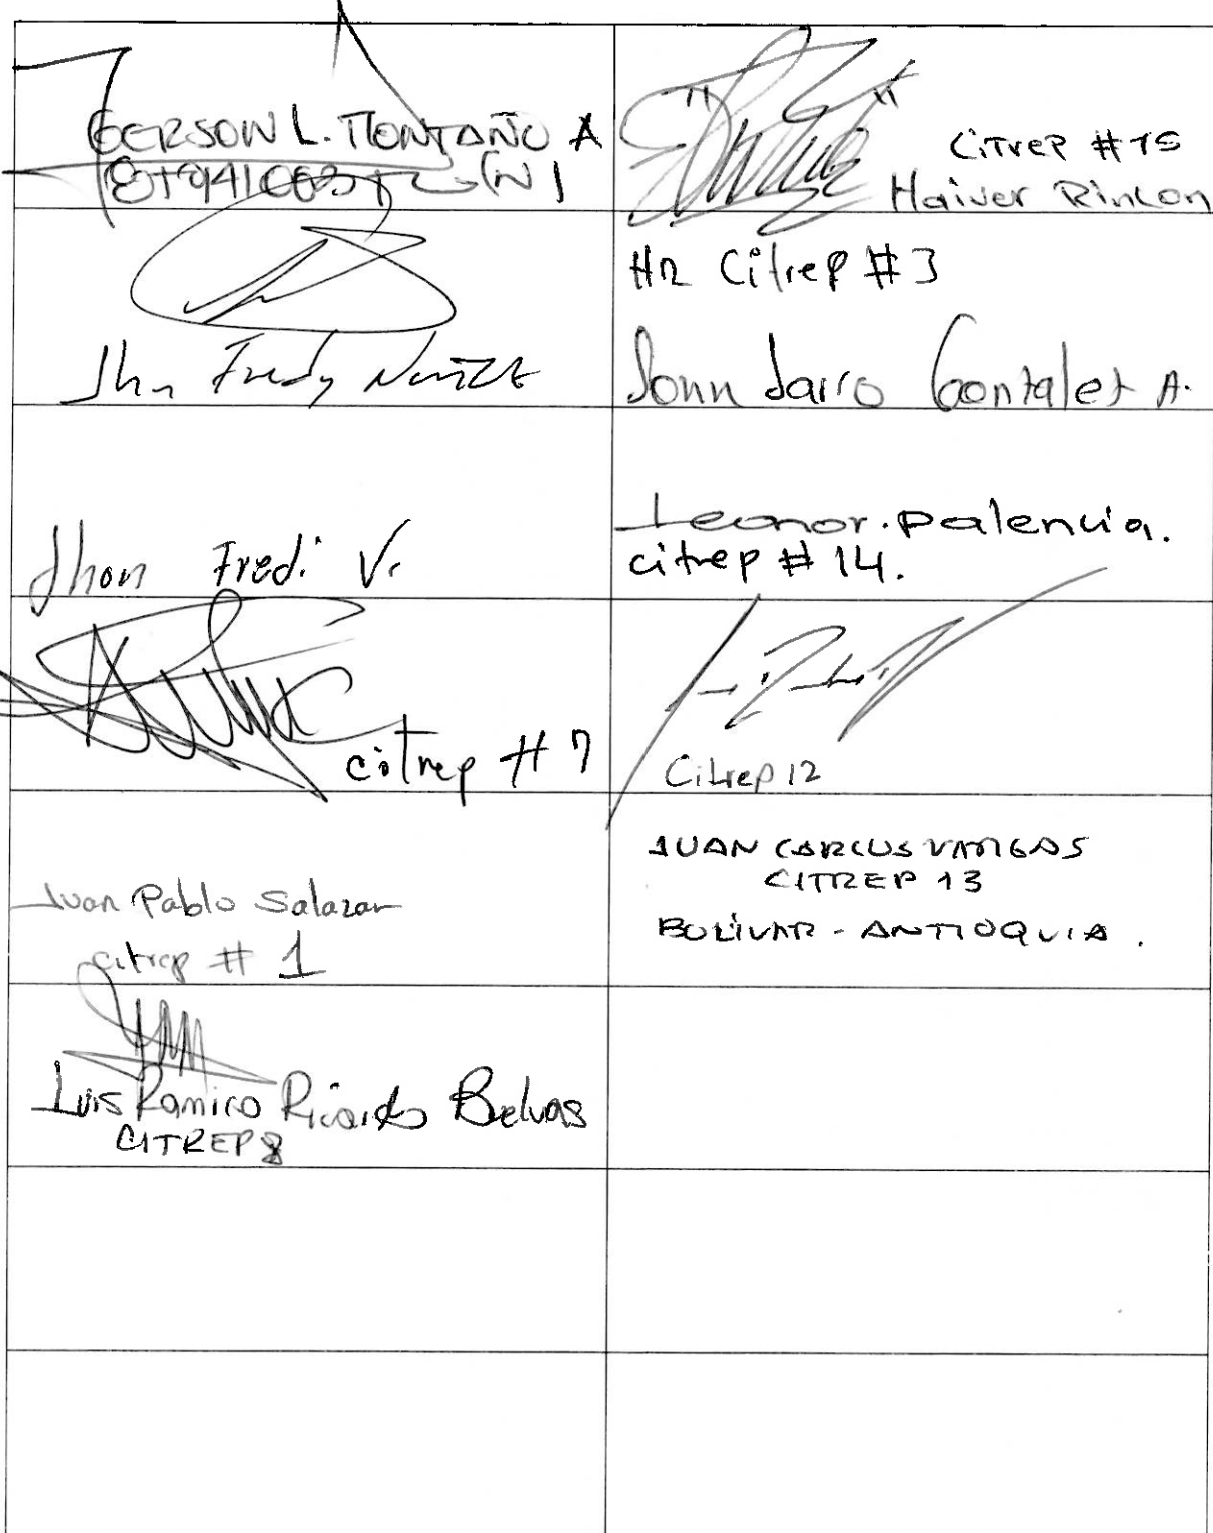 GERSON L. MONTAÑO A
Citrep #15
Haiver Rincon
Jhn Fredy Nuñez
HR Citrep #3
Jonn Jairo Gontalet A.
Jhon Fredi V.
Leonor. palencia.
citrep # 14.
citrep # 7
Citrep 12
Juan Pablo Salazar
citrep # 1
JUAN CARLOS VARGAS
CITREP 13
BOLÍVAR - ANTIOQUIA.
Luis Ramiro Ricardo Buelvas
CITREP 8